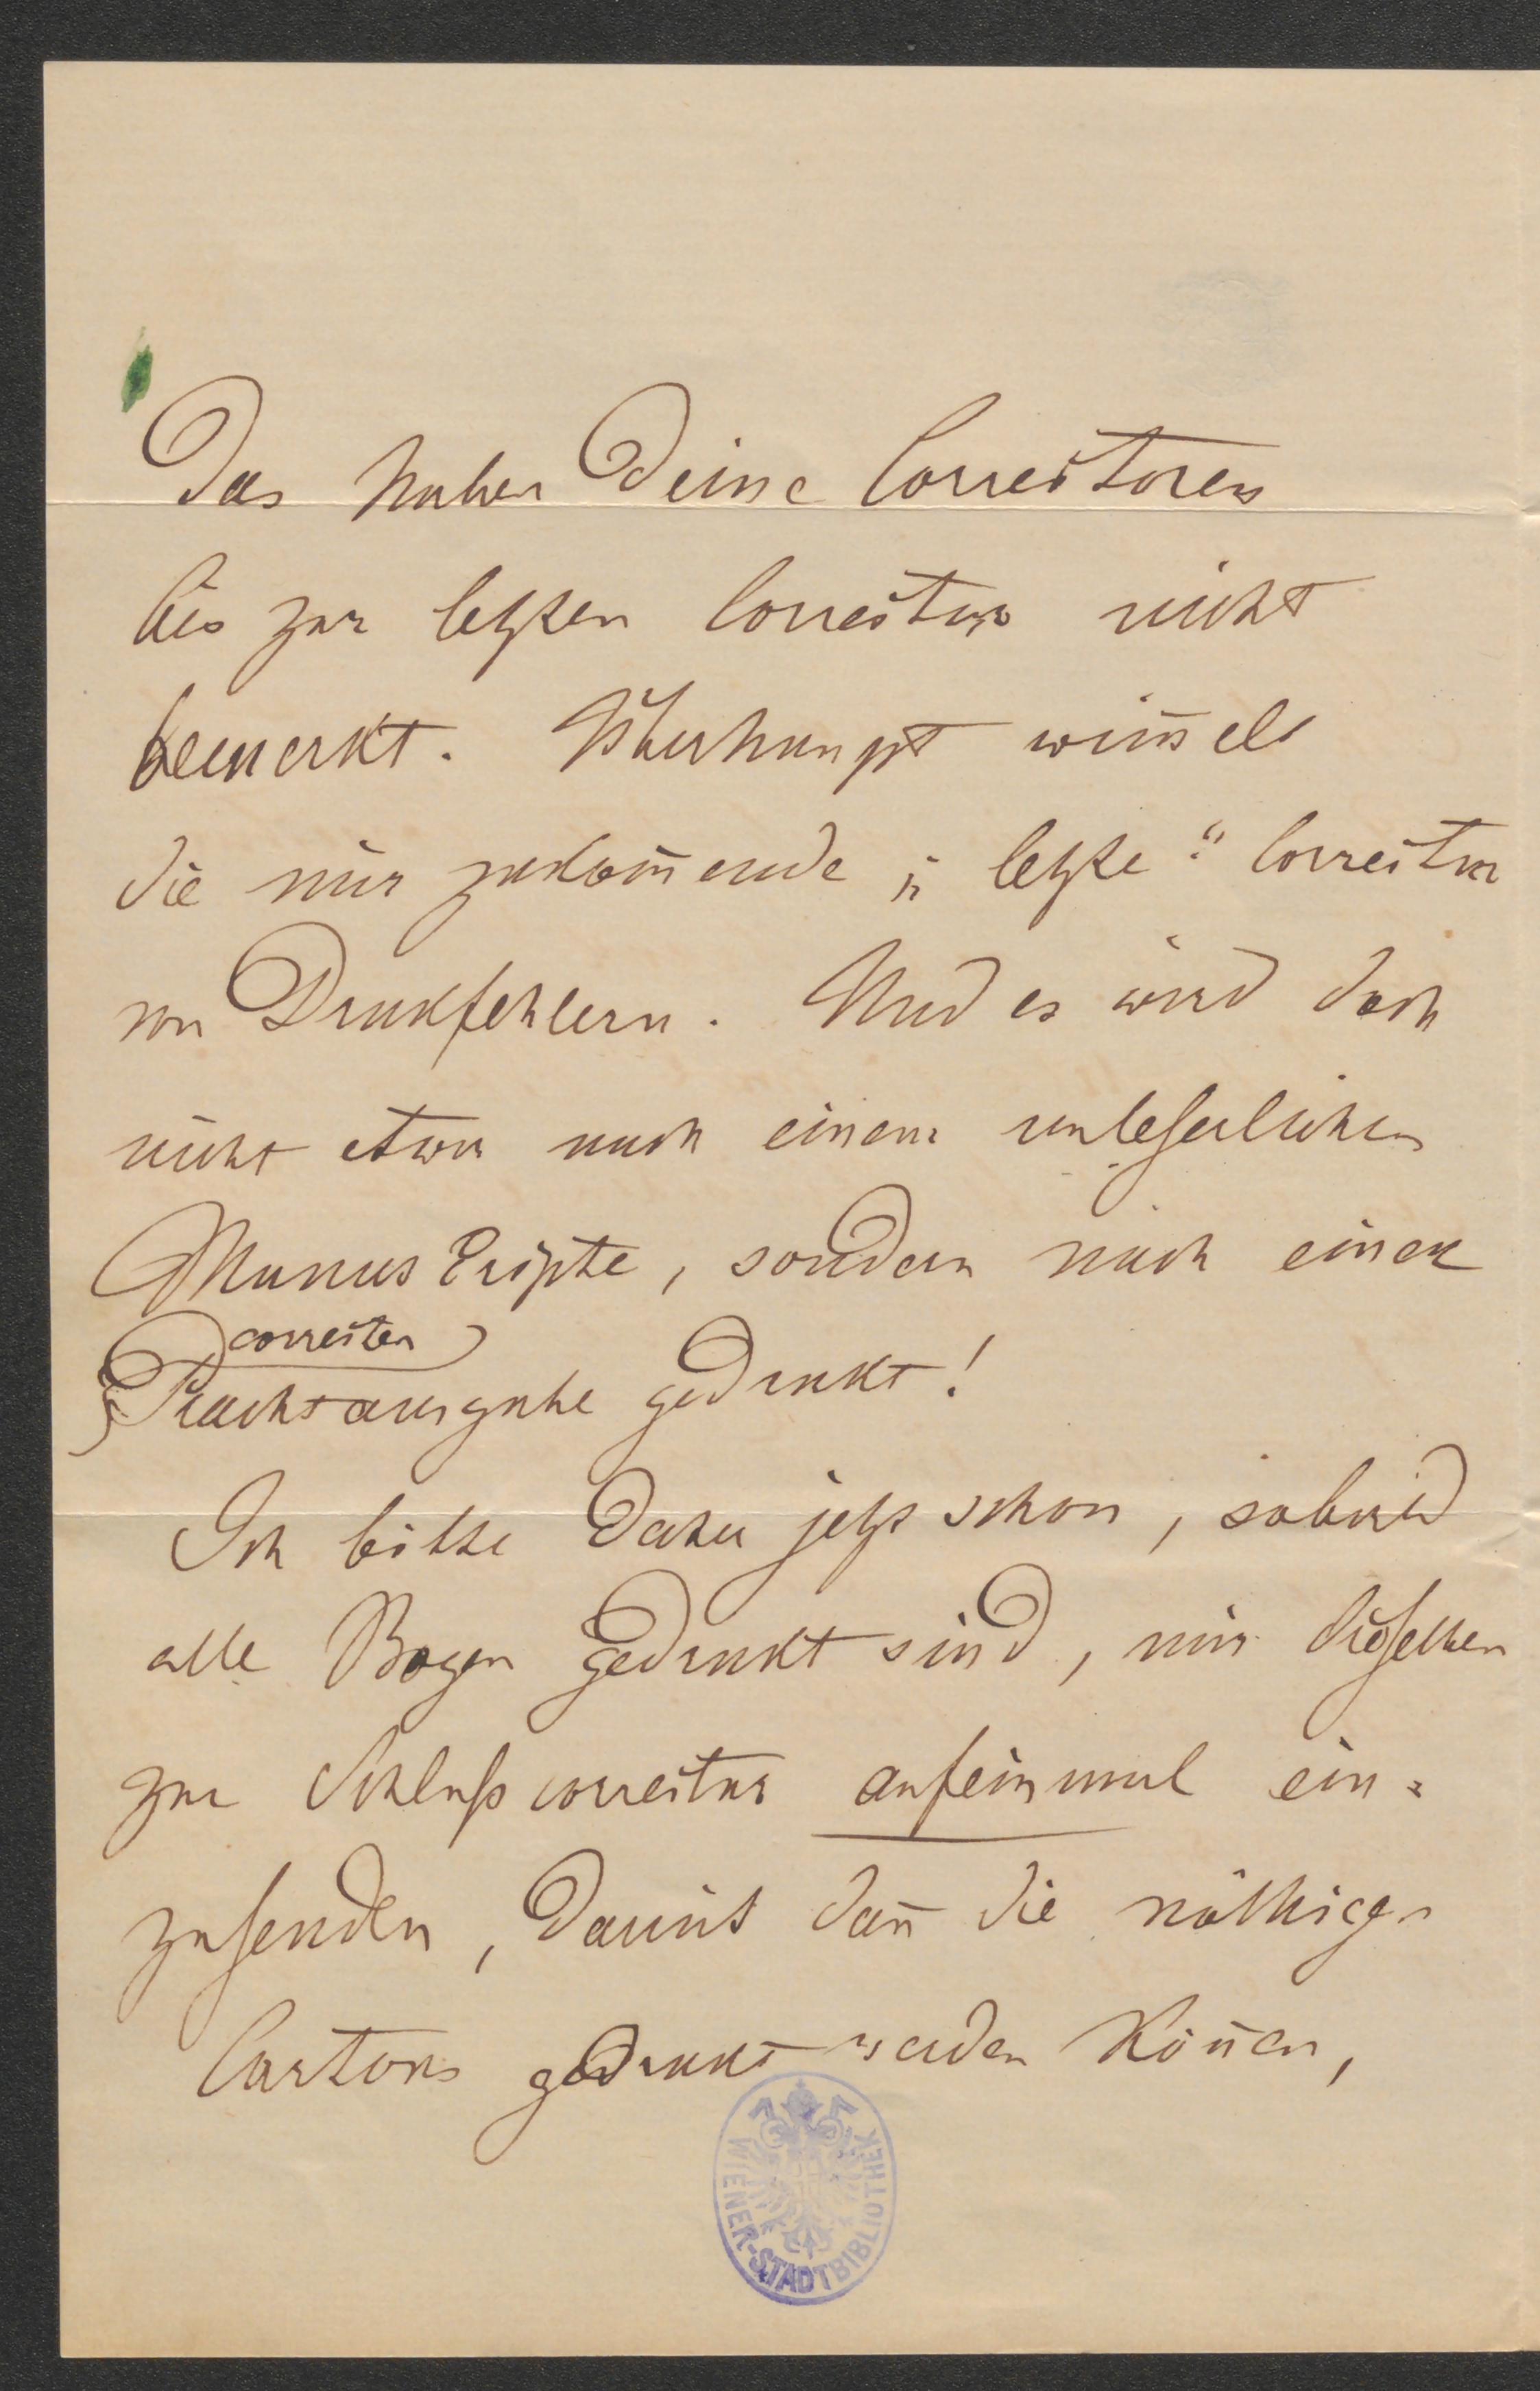 Das haben Deine Correctoren
bis zur letzten Correctur nicht
bemerkt. Überhaupt wim̄elt
die mir zukom̄ende „letzte“ Correctur
von Druckfehlern. Und es wird doch
nicht etwa nach einem unleserlichen
Manuscripte, sondern nach einer
correcten
Prachtausgabe gedruckt!
Ich bitte daher jetzt schon, sobald
alle Bogen gedruckt sind, mir dieselben
zur Schlußcorrectur aufeinmal ein=
zusenden, damit dan̄ die nöthigen
Cartons gedruckt werden kön̄en,
WIENER-STADTBIBLIOTHEK